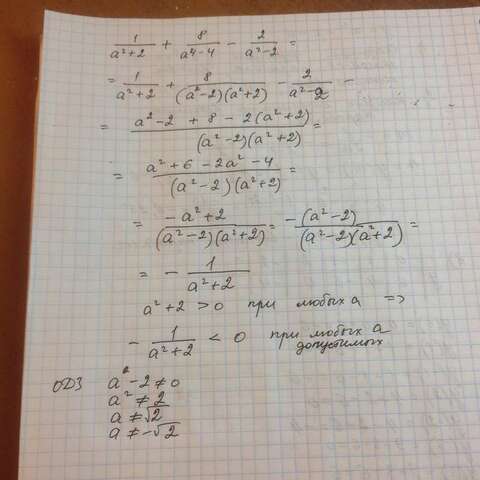 1/(a²+2) + 8/(a⁴-4) - 2/(a²-2) =
= 1/(a²+2) + 8/((a²-2)(a²+2)) - 2/(a²-2) -
= (a²-2 + 8 - 2(a²+2))/((a²-2)(a²+2)) =
= (a²+6-2a²-4)/((a²-2)(a²+2)) =
= (-a²+2)/((a²-2)(a²+2)) = (-(a²-2))/((a²-2)(a²+2)) =
= - 1/(a²+2)
a²+2 >0 при любых a =>
- 1/(a²+2) < 0 при любых a
допустимых
ОДЗ a²-2≠0
a²≠2
a≠√2
a≠-√2